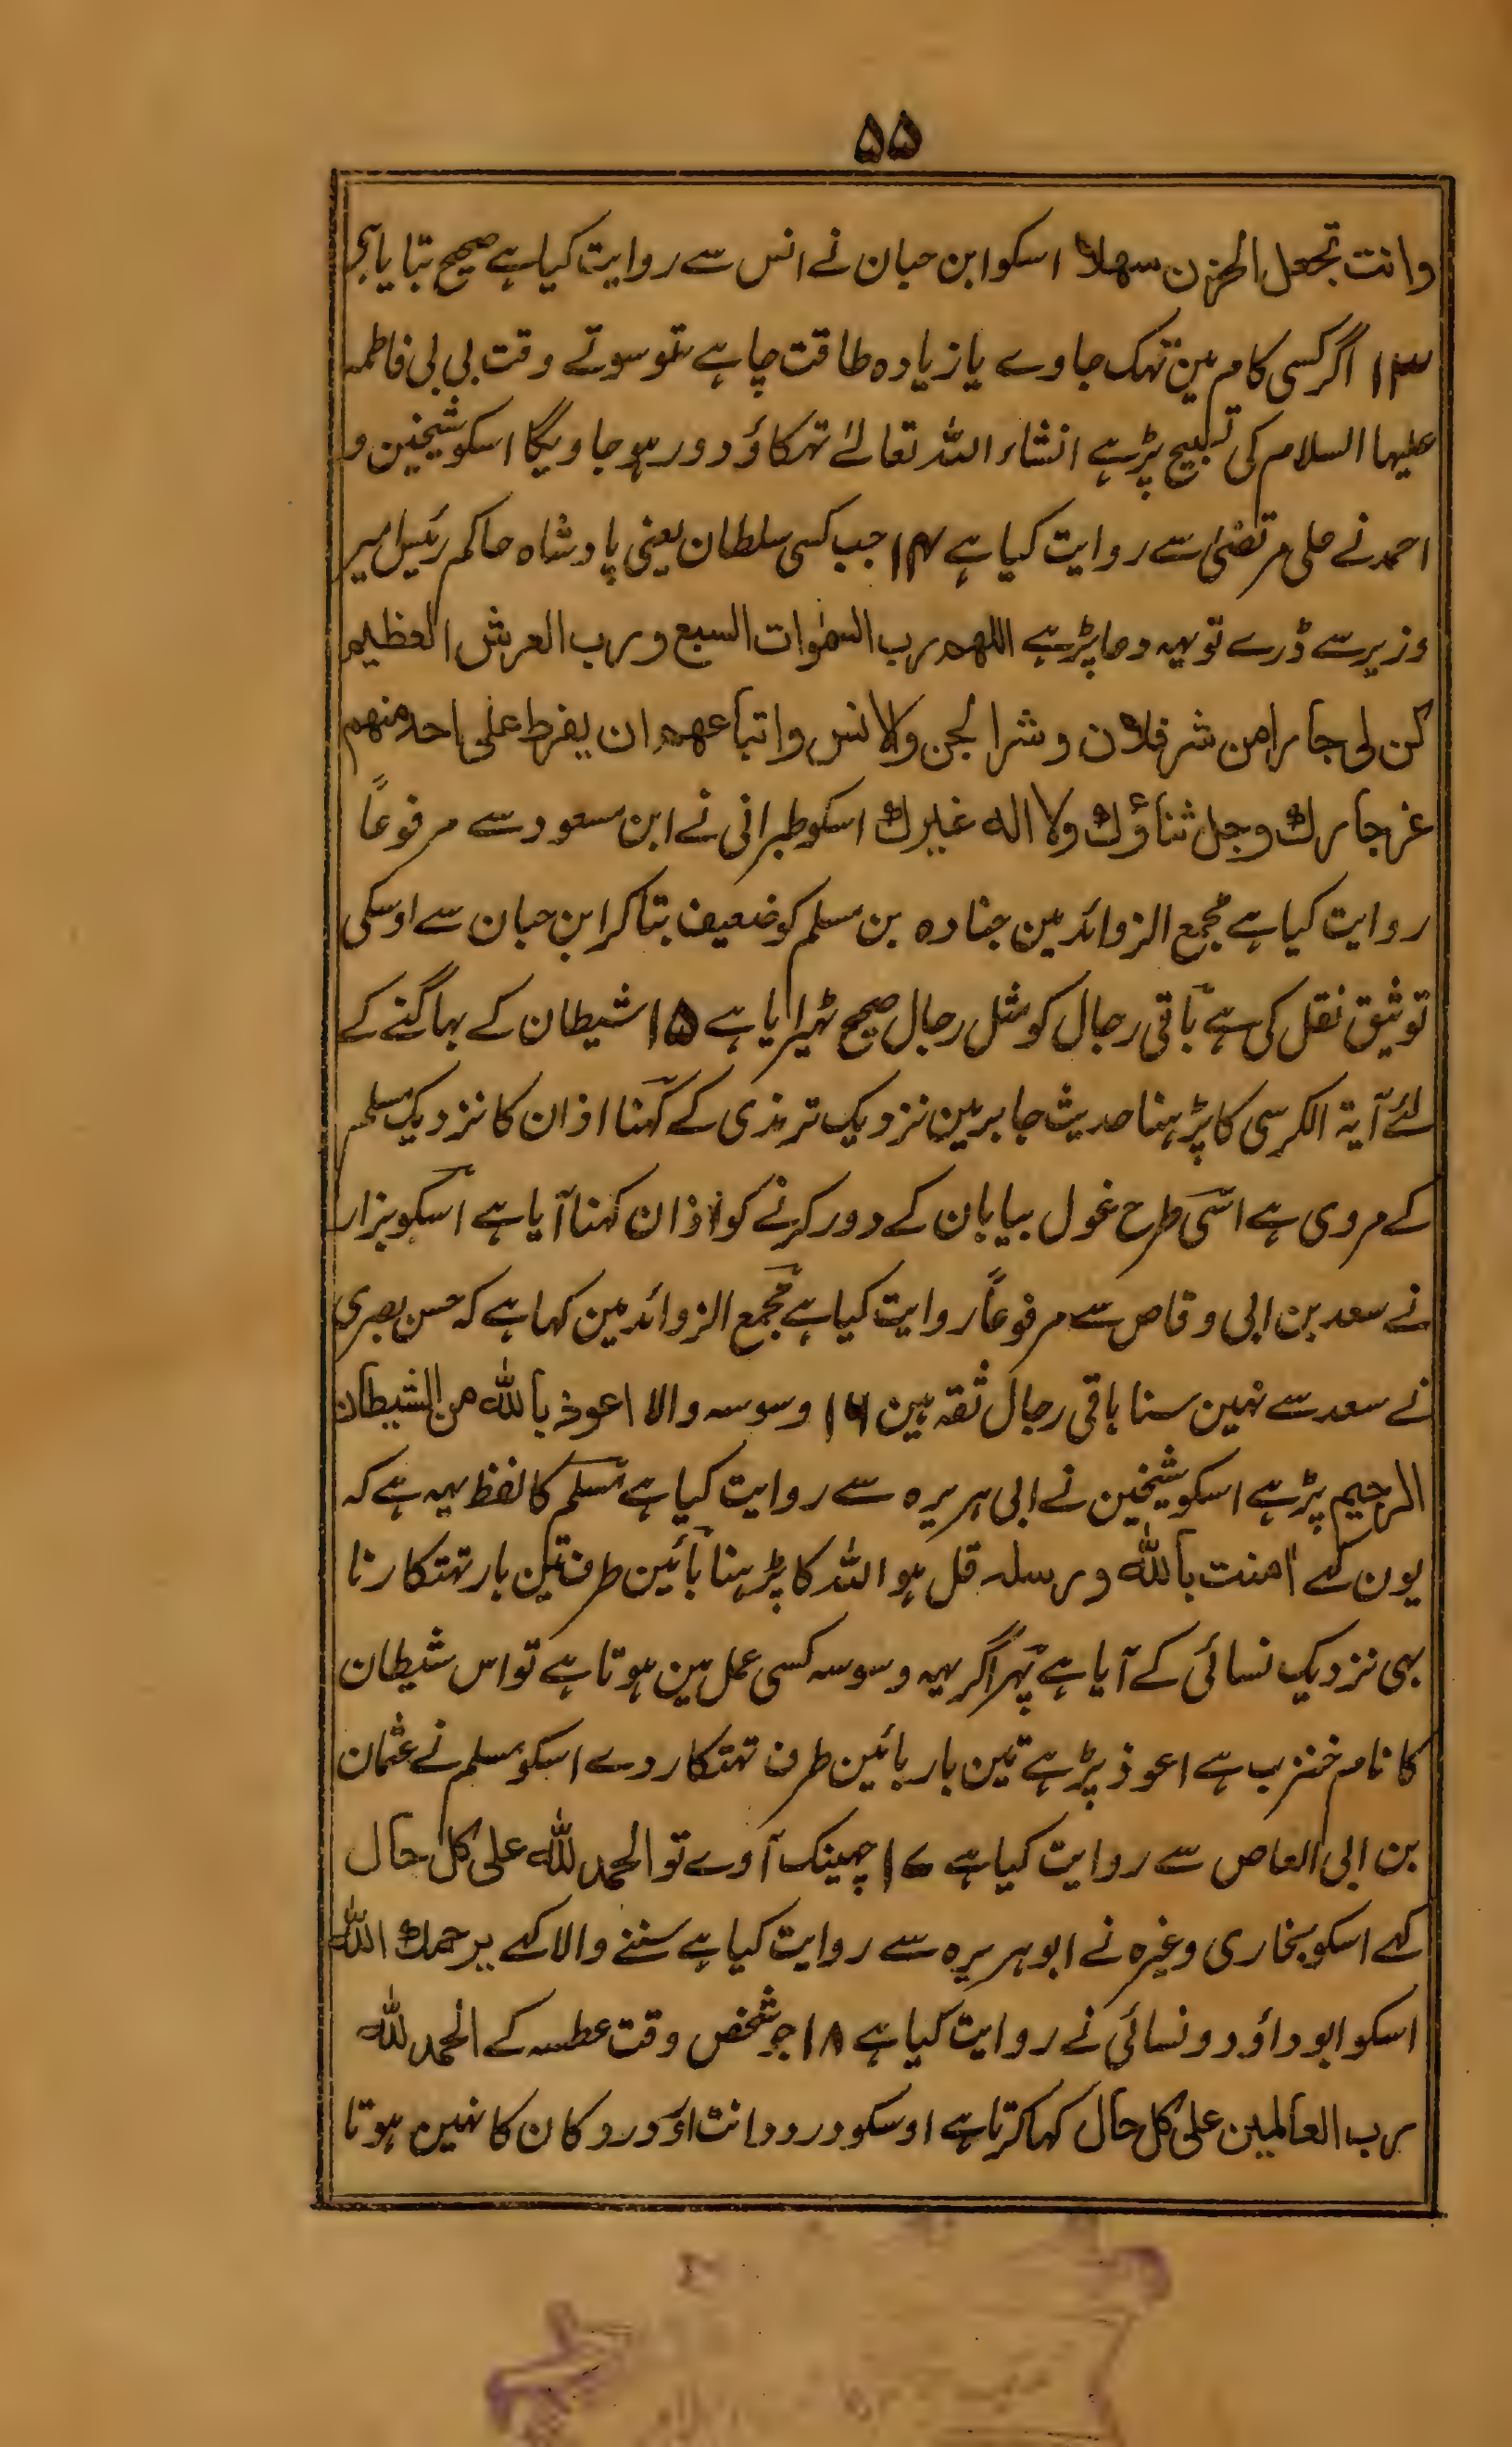 ۵۵
وانت تجعل الحزن سهلا اسکو ابن حبان نے انس سے روایت کیا ہے صحیح بتایا ہے
۱۳ اگر کسی کام مین تہک جاوے یا زیادہ طاقت چاہے تو سوتے وقت بی بی فاطمہ
علیہا السلام کی تسبیح پڑہے انشاء اللہ تعالےٰ تہکاؤ دور ہو جاویگا اسکو شیخین و
احمد نے علی مرتضیٰ سے روایت کیا ہے ۱۴ جب کسی سلطان یعنی پادشاہ حاکم رئیس امیر
وزیر سے ڈرے تو یہہ دعا پڑہے اللهم رب السمٰوات السبع ورب العرش العظیم
کن لی جارا من شر فلان وشر الجن والانس واتباعهم ان یفرط علی احد منهم
عز جارك وجل ثناؤك ولا اله غیرك اسکو طبرانی نے ابن مسعود سے مرفوعاً
روایت کیا ہے مجمع الزوائد مین جنادہ بن سلم کو ضعیف بتا کر ابن حبان سے اوسکی
توثیق نقل کی ہے باقی رجال کو مثل رجال صحیح ٹہیرایا ہے ۱۵ شیطان کے بہاگنے کے
لئے آیۃ الکرسی کا پڑہنا حدیث جابر مین نزدیک ترمذی کے کہنا اذان کا نزدیک مسلم
کے مروی ہے اسی طرح غول بیابان کے دور کرنے کو اذان کہنا آیا ہے اسکو بزار
نے سعد بن ابی وقاص سے مرفوعاً روایت کیا ہے مجمع الزوائد مین کہا ہے کہ حسن بصری
نے سعد سے نہین سنا باقی رجال ثقہ ہین ۱۶ وسوسہ والا اعوذ بالله من الشیطان
الرجیم پڑہے اسکو شیخین نے ابی ہریرہ سے روایت کیا ہے مسلم کا لفظ یہہ ہے کہ
یون کہے اٰمنت بالله ورسله قل ہو اللہ کا پڑہنا بائین طرف تین بار تہتکارنا
بہی نزدیک نسائی کے آیا ہے پہر اگر یہہ وسوسہ کسی عمل مین ہوتا ہے تو اس شیطان
کا نام خنزب ہے اعوذ پڑہے تین بار بائین طرف تہتکار دے اسکو مسلم نے عثمان
بن ابی العاص سے روایت کیا ہے ۱۷ چہینک آوے تو الحمد لله علی کل حال
کہے اسکو بخاری وغیرہ نے ابو ہریرہ سے روایت کیا ہے سننے والا کہے یرحمك الله
اسکو ابو داؤد و نسائی نے روایت کیا ہے ۱۸ جو شخص وقت عطسہ کے الحمد لله
رب العالمین علی کل حال کہا کرتا ہے اوسکو درد دانت اور درد کان کا نہین ہوتا